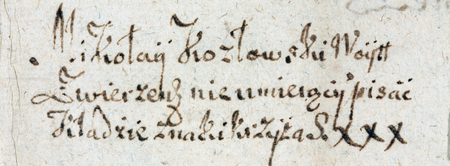 Mikołaÿ Kozłowski Woÿtt
Zwierzenſ nie umieiącÿ pisać
kładzie znaki krzyża S. xxx